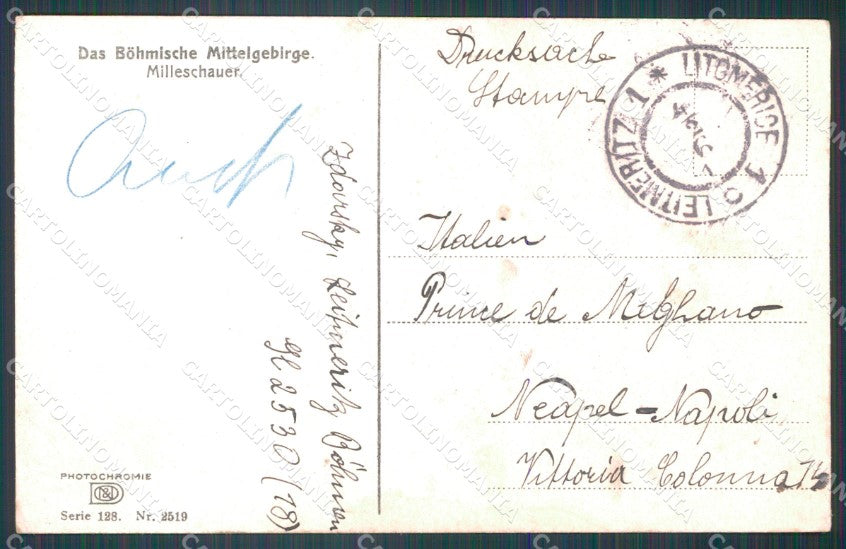 Das Böhmische Mittelgebirge.
Milleschauer.
Drucksache
Stampe
LITOMĚŘICE 1
LEITMERITZ 1
Italien
Prince de Meghano
Neapel-Napoli
Vittoria Colonna 14
Zdarsky, Leitmeritz Böhmen
2530 (18)
PHOTOCHROMIE
Serie 128. Nr. 2519
CARTOLINOMANIA